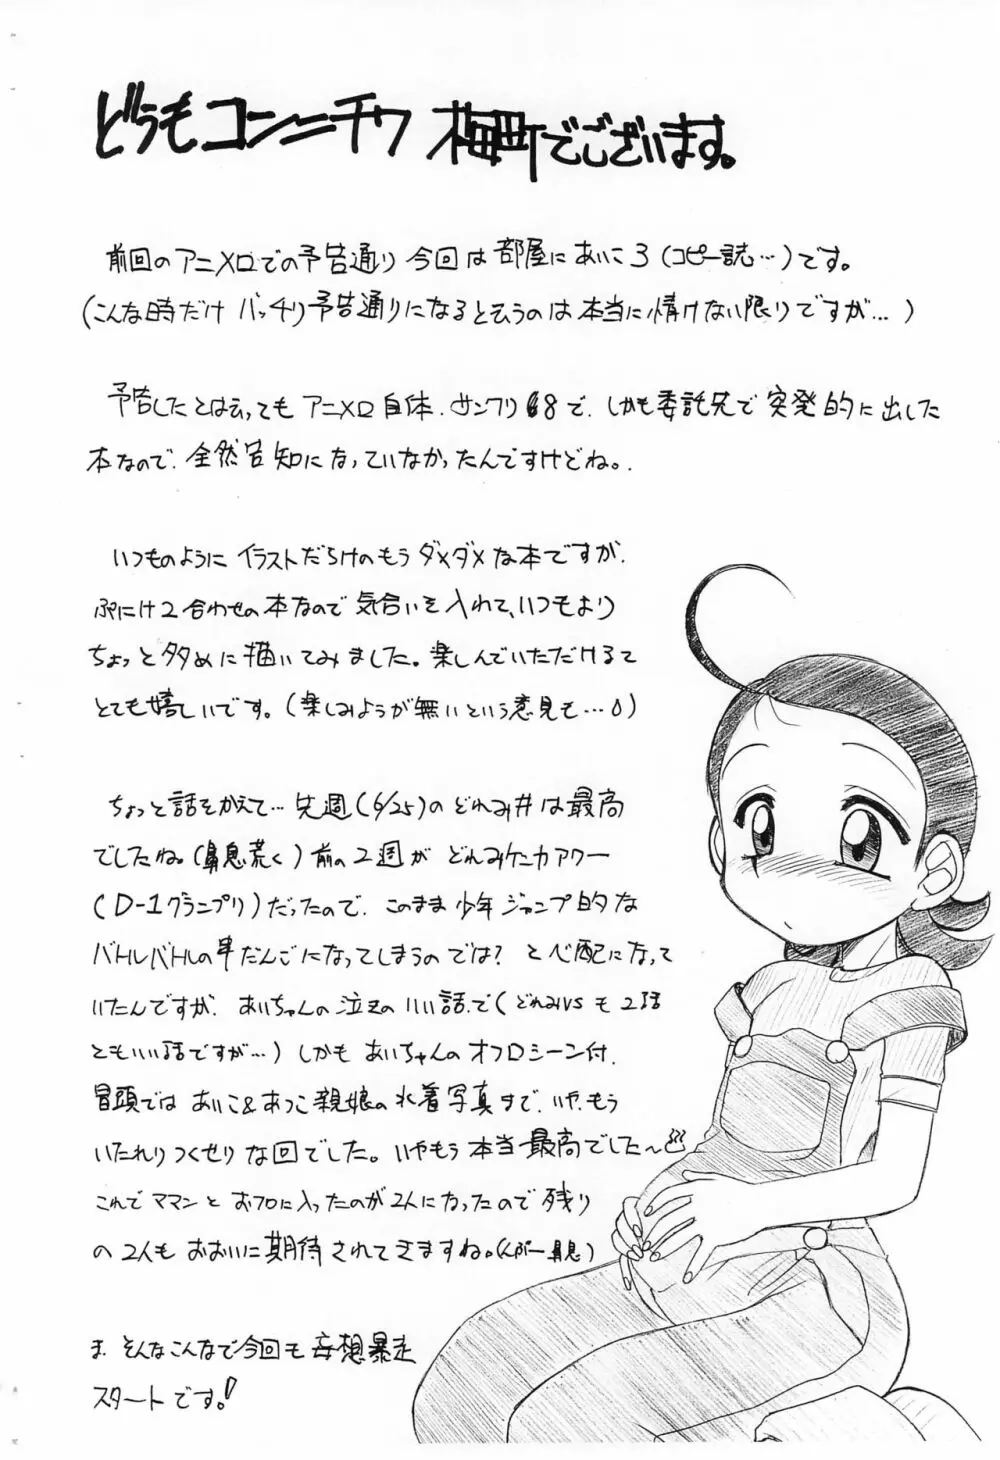 どうもコンニチワ 梅町でございます。
前回のアニメロでの予告通り今回は部屋にあいこ3(コピー誌…)です。
(こんな時だけ バッチリ予告通りになると云うのは本当に情けない限りですが…)
予告したとは云ってもアニメロ自体、サンクリ8で、しかも委託先で突発的に出した
本なので、全然告知になっていなかったんですけどね。
いつものように イラストだらけのもう ダメダメな本ですが、
ぷにけ2合わせの本なので気合いを入れて、いつもより
ちょっと多めに描いてみました。楽しんでいただけるて
とても嬉しいです。(楽しみようが無いという意見も…)
ちょっと話をかえて… 先週(6/25)の どれみ#は最高
でしたね。(鼻息荒く)前の2週が どれみケンカアワー
(D-1グランプリ)だったので、このまま少年ジャンプ的な
バトルバトルの串だんごになってしまうのでは? と心配になって
いたんですが、あいちゃんの泣きの いい話で(どれみvsも2話
ともいい話ですが…)しかも あいちゃんのオフロシーン付、
冒頭では あいこ&あつこ親娘の水着写真まで、いや、もう
いたれりつくせり な回でした。いやもう本当最高でした〜
これで ママンと お7ロに入ったのが2人になったので残り
の2人も おおいに期待されてきますね。(んぷー鼻息)
ま、そんなこんなで今回も妄想暴走
スタートです。!